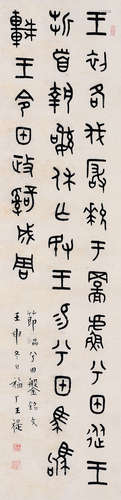 王初各伐厰𤞤于䍙䖒甲從王
折首執訊休亡敃王易兮甲馬駒
車王令甲政𤔲成周
節臨兮田盤銘文
壬申冬日福厂王禔